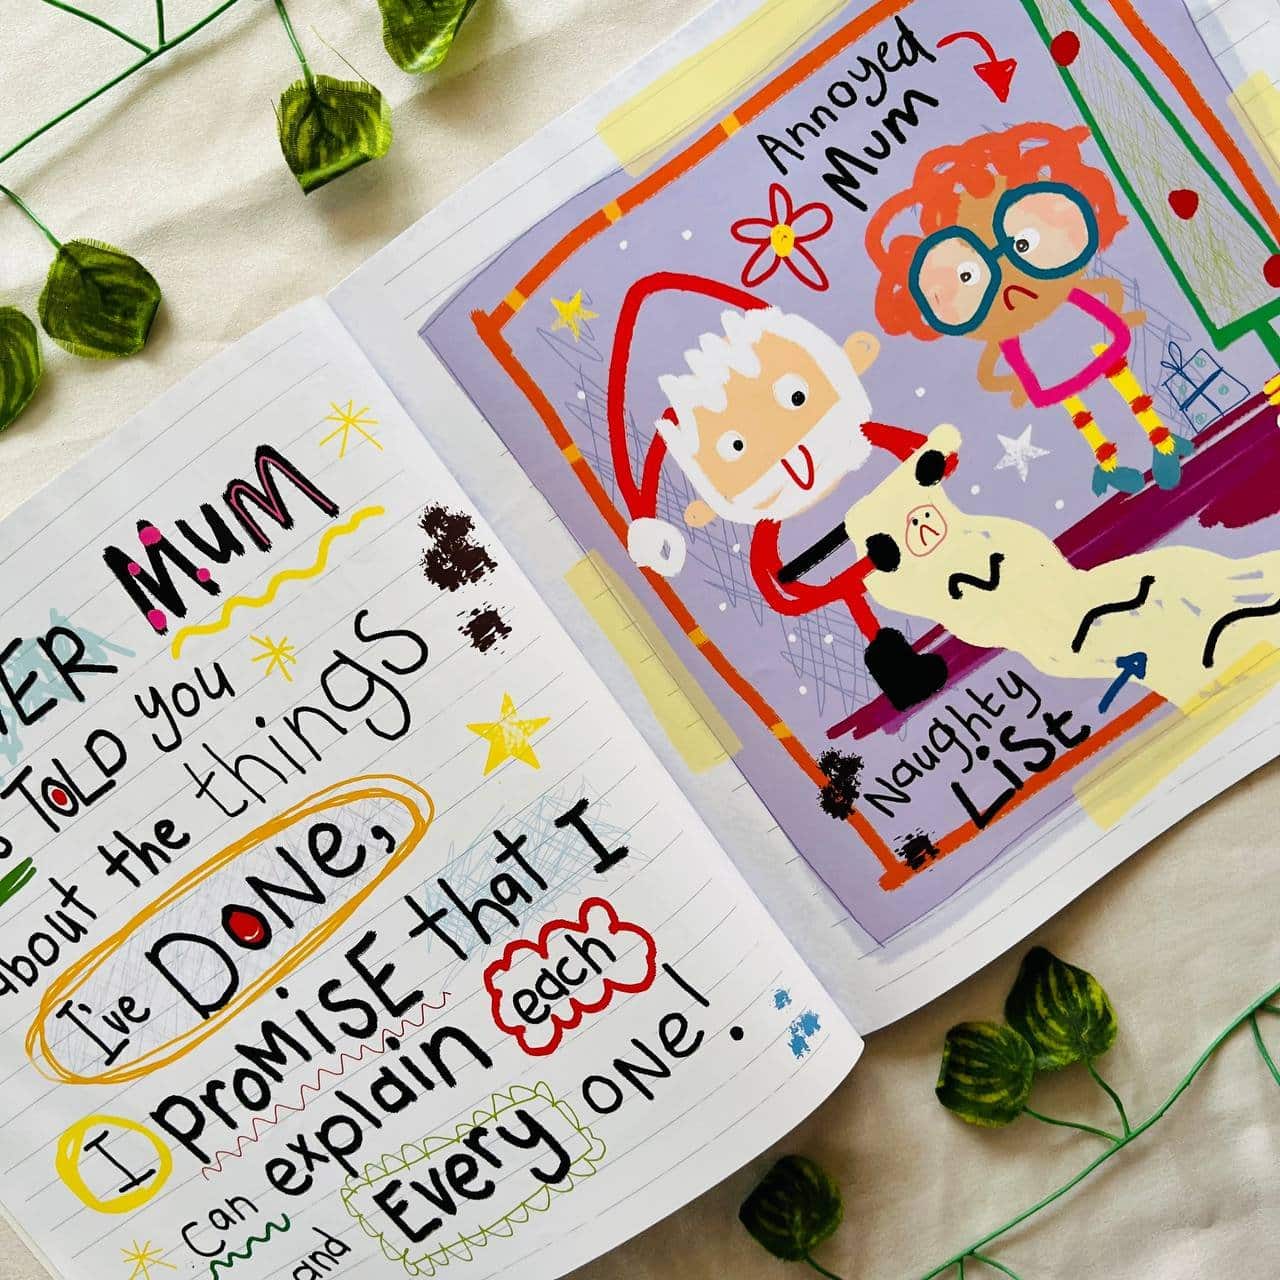 MUM
TOLD you
about the things
I've DONE,
I PROMISE that I
can explain each
and Every ONE!
Annoyed
Mum
Naughty
LiST